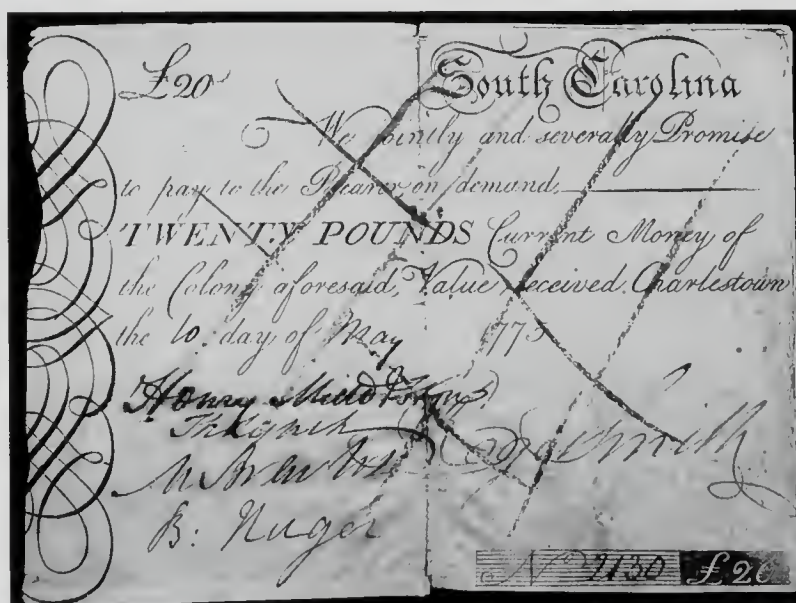 £20 South Carolina
We jointly and severally Promise
to pay to the Bearer on demand
TWENTY POUNDS Current Money of
the Colony aforesaid, Value received. Charlestown
the 10. day of May 1775
Henry Middleton
Th Lynch
M Brewton
B: Huger
Smith
No 2130 £20